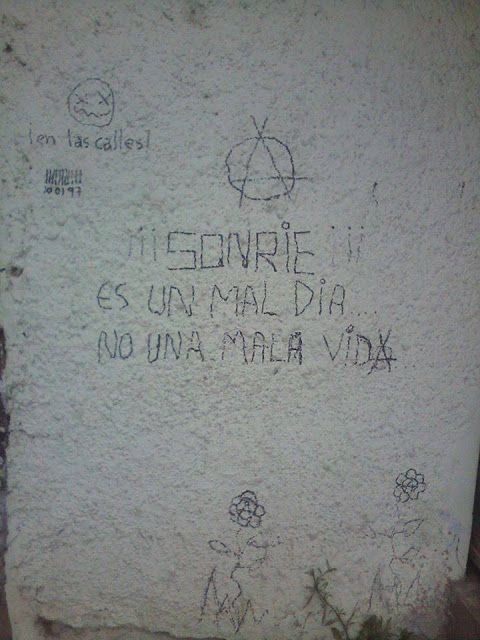 ¡en las calles!
¡¡¡SONRIE!!!
ES UN MAL DIA....
NO UNA MALA VIDA...